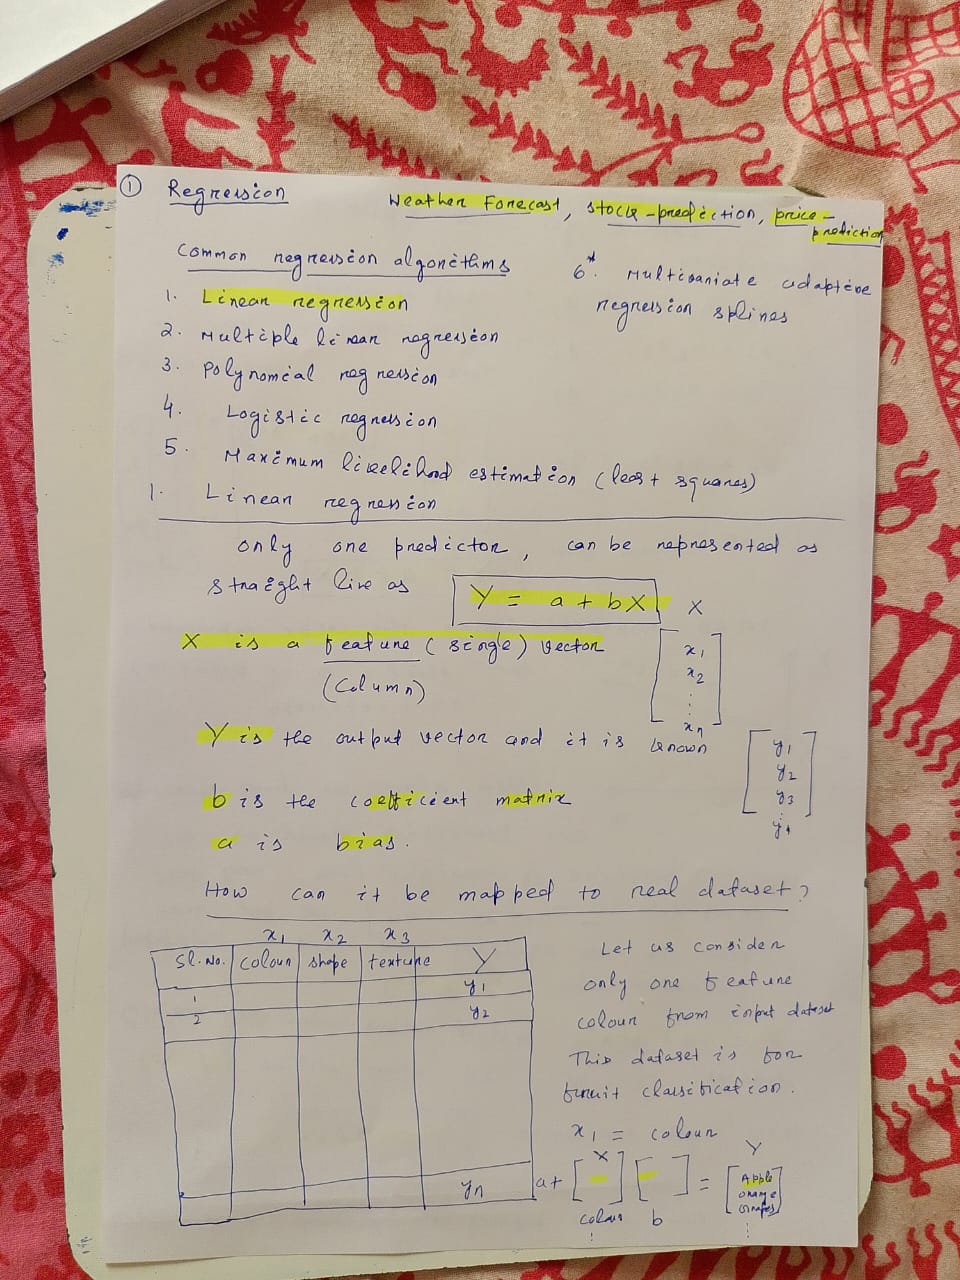 ① Regression
Weather Forecast, stock-prediction, price-
prediction
Common regression algorithms
1. Linear regression
2. Multiple linear regression
3. Polynomial regression
4. Logistic regression
5. Maximum likelihood estimation (least squares)
6*. Multivariate adaptive
regression splines
1. Linear regression
only one predictor, can be represented as
straight line as Y = a + bX
X is a feature (single) vector
(Column)
X
x1
x2
⋮
xn
Y is the output vector and it is known
y1
y2
y3
⋮
b is the coefficient matrix
a is bias.
How can it be mapped to real dataset?
x1 x2 x3
Sl. No. colour shape texture Y
1 y1
2 y2
yn
Let us consider
only one feature
colour from input dataset
This dataset is for
fruit classification.
x1 = colour
X Y
a+ [ - ] [ - ] = [ Apple
orange
Grapes ]
colour b
⋮ ⋮